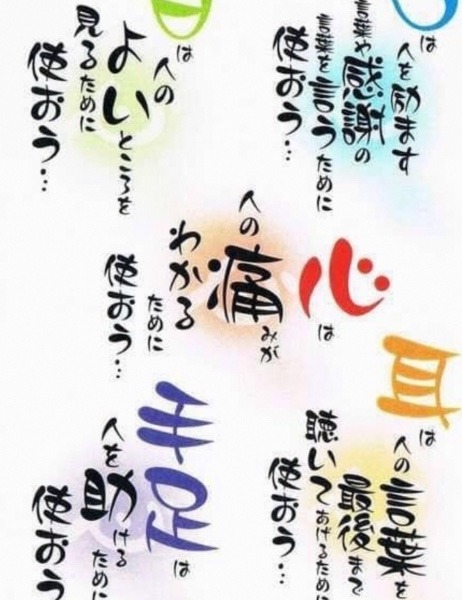 は
人を励ます
言葉や感謝の
言葉を言うために
使おう…
は
人の
よいところを
見るために
使おう…
心は
人の痛みが
わかる
ために
使おう…
耳は
人の言葉を
最後まで
聴いてあげるために
使おう…
手足は
人を助ける
ために
使おう…